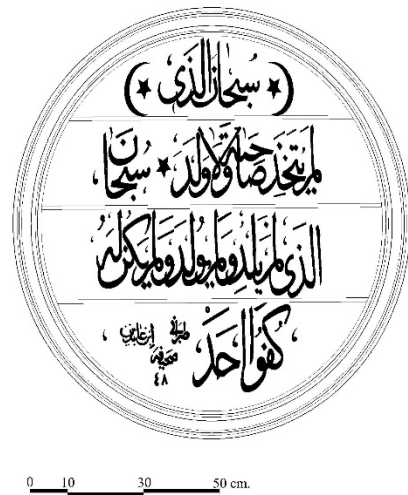 (★ سبحان الذى ★)
لم يتخذ صاحبة ولا ولد ★ سبحان
الذى لم يلد ولم يولد ولم يكن له
كفوا احد
ابن عابدين
صحيفه
٤٨
0 10 30 50 cm.